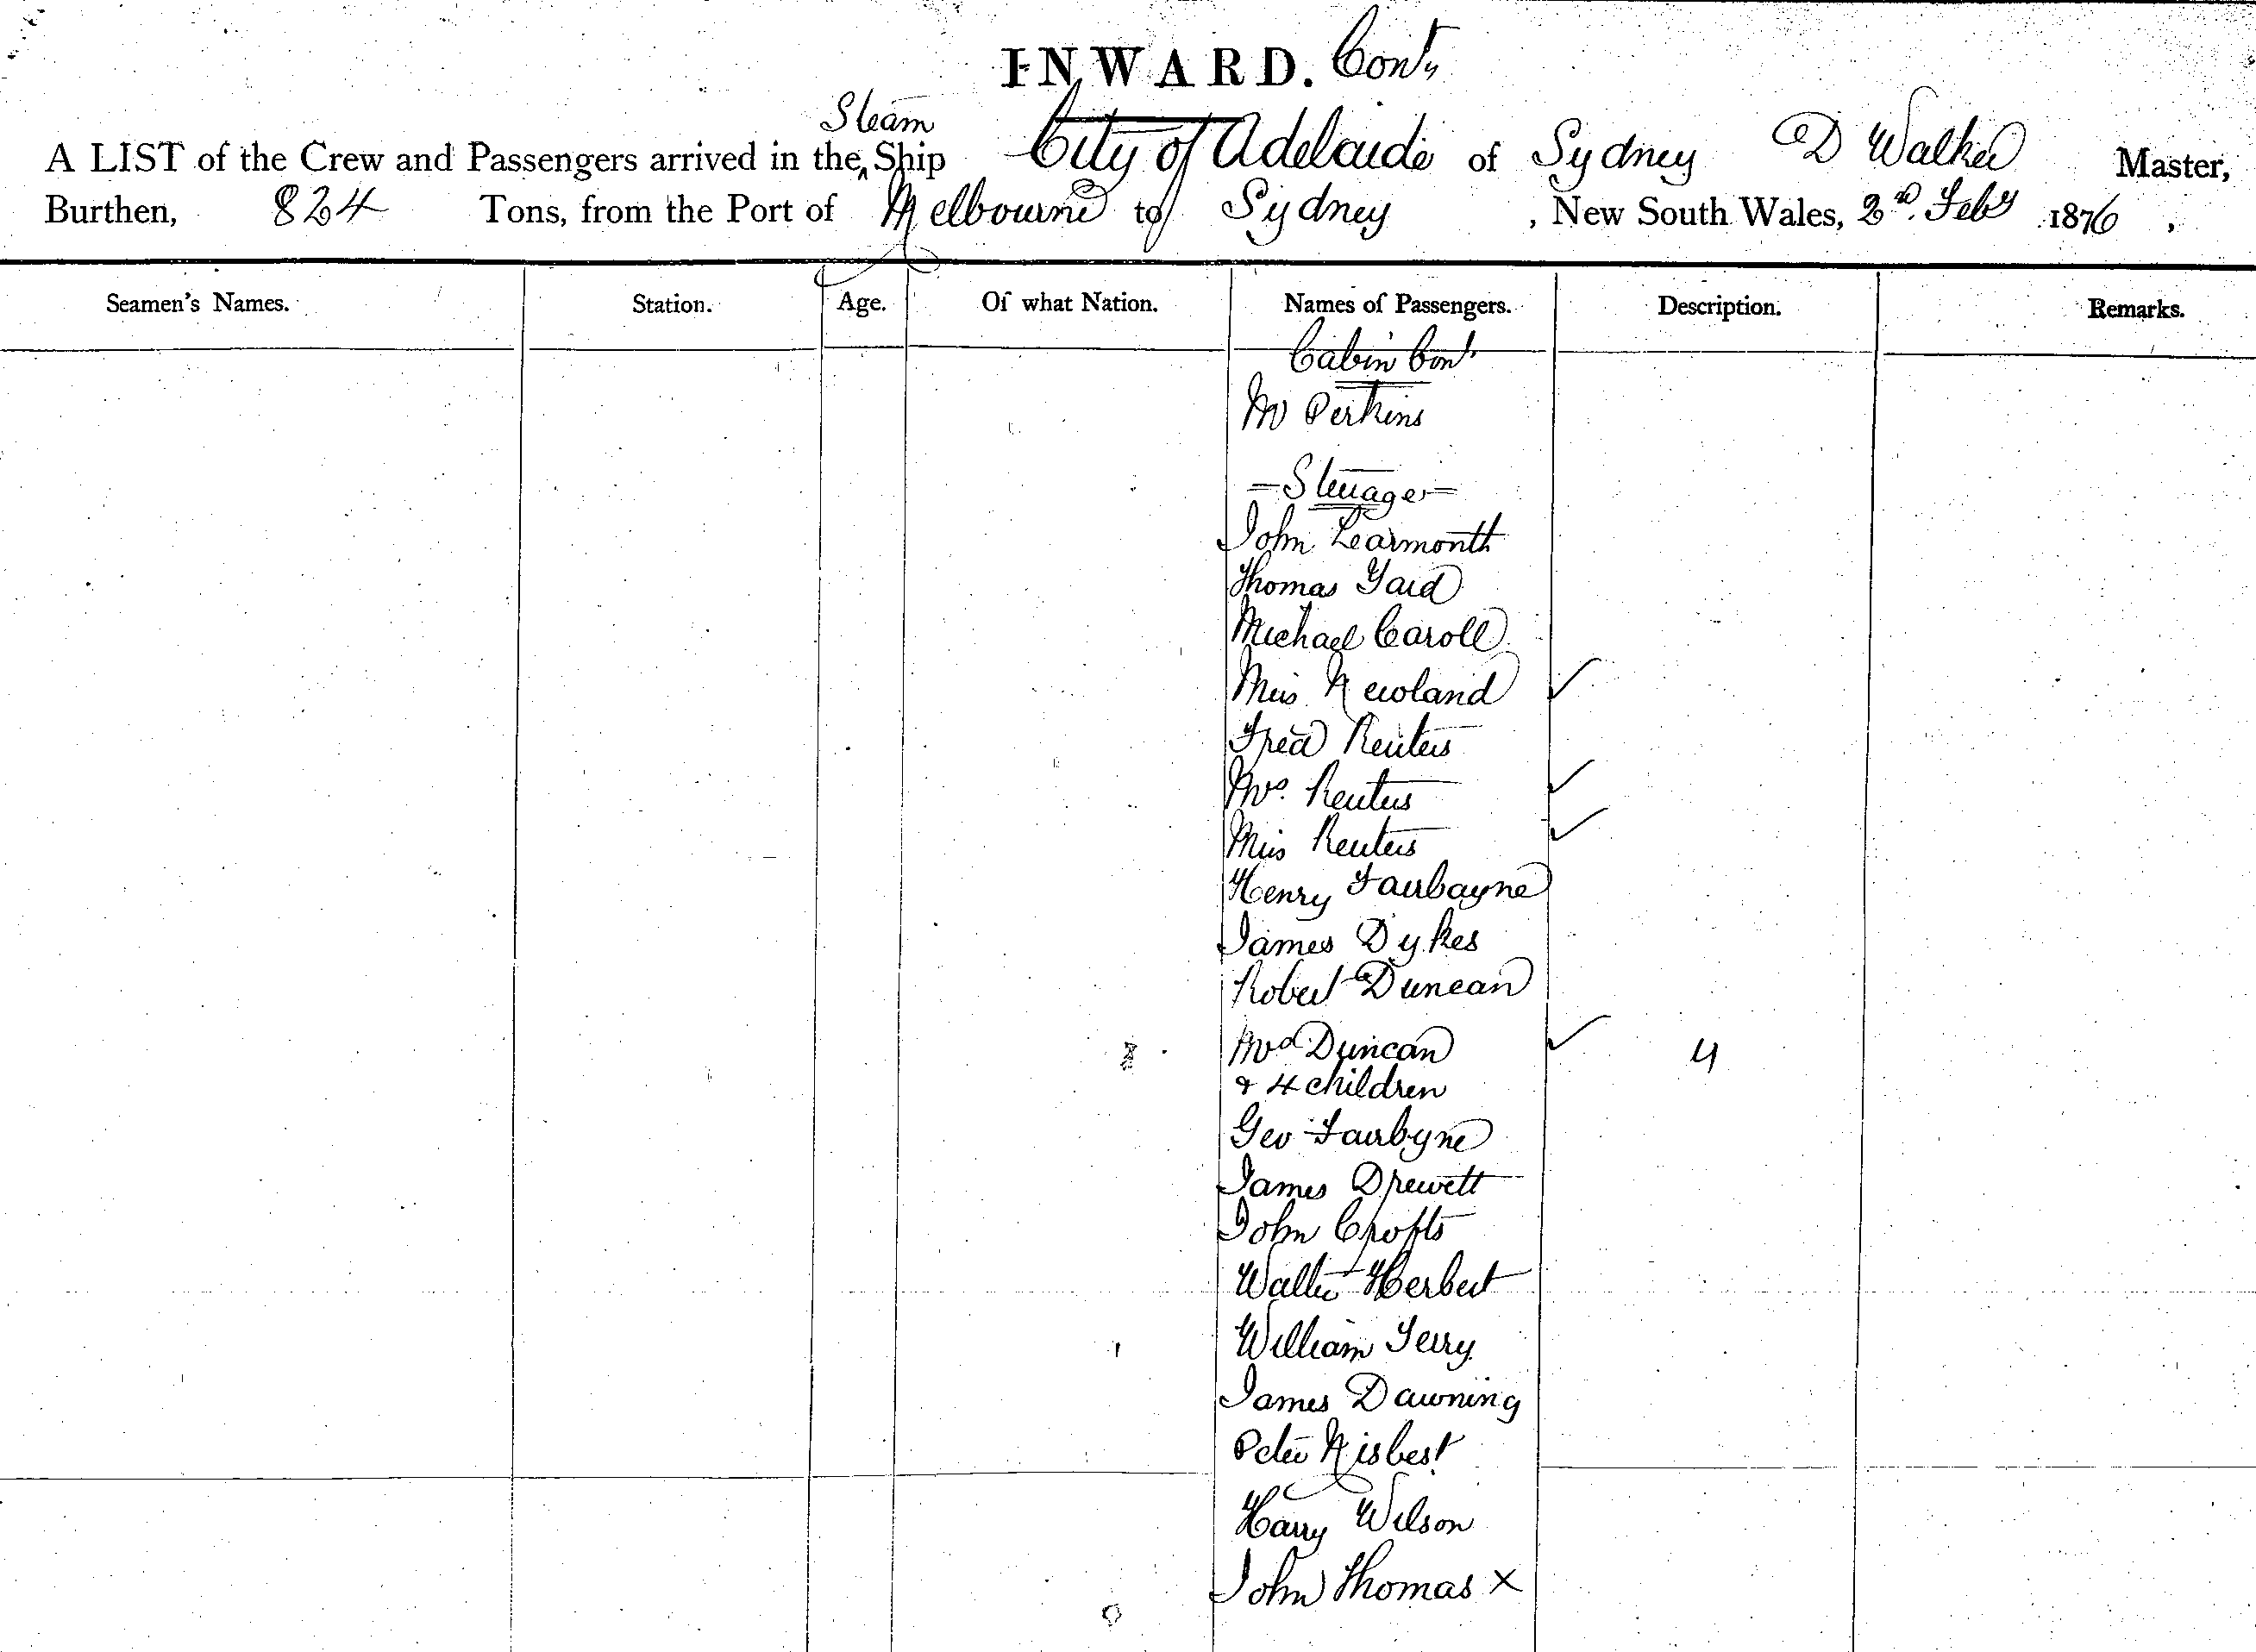 INWARD. Cont,
Steam
A LIST of the Crew and Passengers arrived in the Ship City of Adelaide of Sydney D Walker Master,
Burthen, 824 Tons, from the Port of Melbourne to Sydney, New South Wales, 2nd Feby 1876,
Seamen's Names. Station. Age. Of what Nation. Names of Passengers. Description. Remarks.
Cabin Cont
Mr Perkins
Steerage
John Learmonth
Thomas
Michael Caroll
Miss Newland ✓
Fred Reuters
Mrs Reuters ✓
Miss Reuters ✓
Henry Fairbayne
James Dykes
Robert Duncan
Mrs Duncan ✓ 4
& 4 children
Geo Fairbyne
James Drewett
John Crofts
Walter Herbert
William Terry
James Dawning
Peter Nisbest
Harry Wilson
John Thomas X